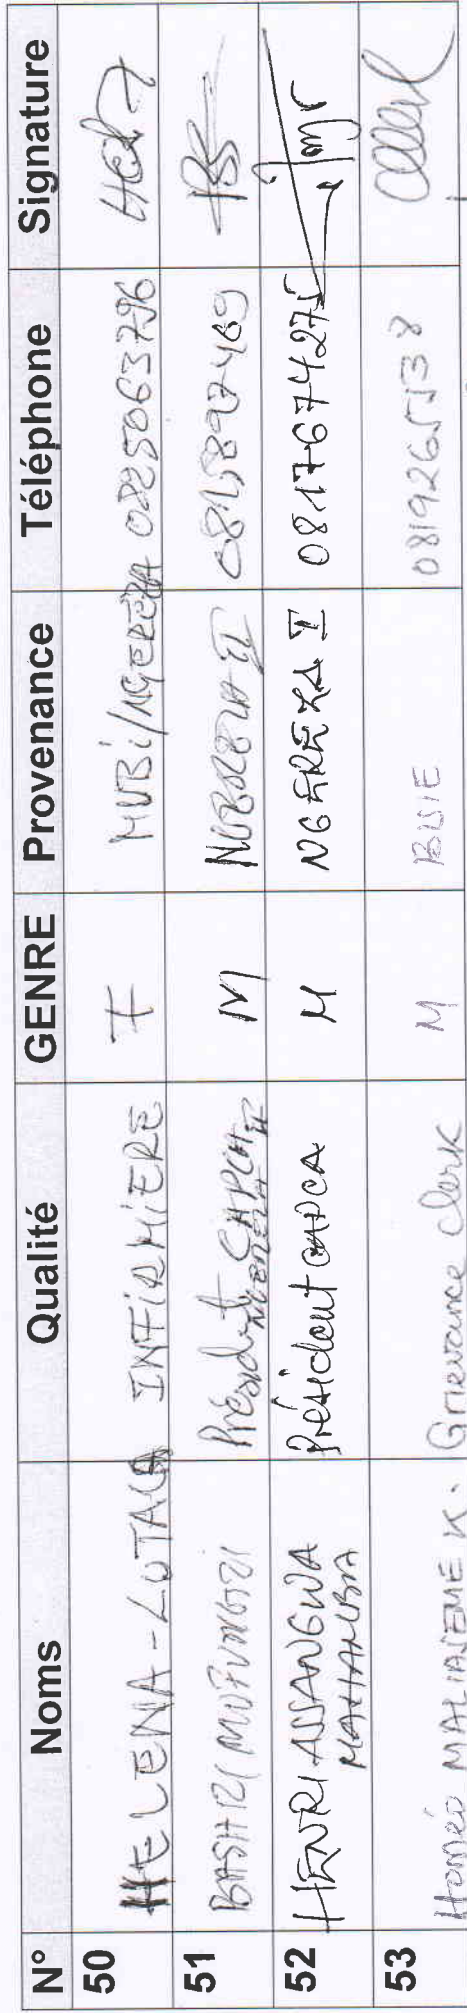 N° Noms Qualité GENRE Provenance Téléphone Signature
50 HELENA-LUTAGA INFIRMIERE F MUBI/NGEREZA 0825063796
51 BASHIZI MUFUNGIZI Président CAPCA NGEREZA II M NGEREZA II 0815897469
52 HENRI ASSANGWA Président CAPCA M NGEREZA I 0817674275
MAHAMBA
53 Homéo MALIASEME K. Grievance Clerk M BUSIE 0819265538